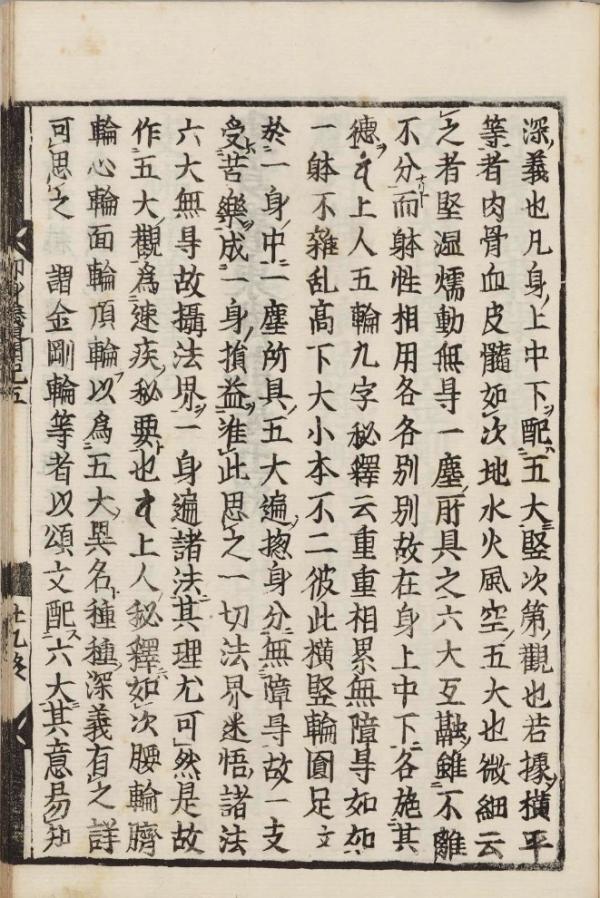 深義也凡身上中下配五大竪次第觀也若據橫平
等者肉骨血皮髓如次地水火風空五大也微細云
之者堅濕煗動無㝵一塵所具之六大互融雖不離
不分而躰性相用各各別別故在身上中下各施其
德上人五輪九字秘釋云重重相累無障㝵如如
一躰不雜乱高下大小本不二彼此橫竪輪圓足文
於一身中一塵所具五大遍揔身分無障㝵故一支
受苦樂成一身損益准此思之一切法界迷悟諸法
六大無㝵故攝法界一身遍諸法其理尤可然是故
作五大觀爲速疾秘要也上人秘釋如次腰輪臍
輪心輪面輪頂輪以爲五大異名種種深義有之詳
可思之 謂金剛輪等者以頌文配六大其意易知